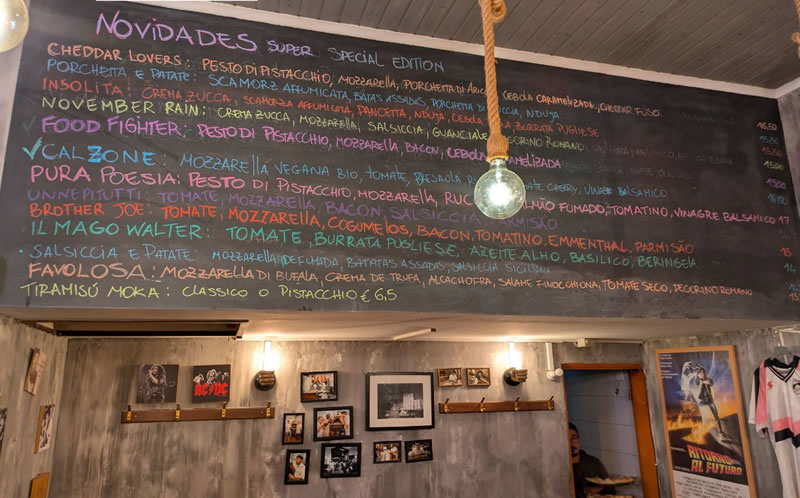 NOVIDADES SUPER SPECIAL EDITION
CHEDDAR LOVERS: PESTO DI PISTACCHIO, MOZZARELLA, PORCHETTA DI ARICCIA, CEBOLA CARAMELIZADA, CHEDDAR FUSO
PORCHETTA E PATATE: SCAMORZ AFFUMICATA, BATATAS ASSADAS, PORCHETTA DI NDUJA
INSOLITA: CREMA ZUCCA, SCAMORZA AFFUMICATA, PANCETTA, NDUJA, CEBOLA BURRATA PUGLIESE 16,50
NOVEMBER RAIN: CREMA ZUCCA, MOZZARELLA, SALSICCIA, GUANCIALE PECORINO ROMANO
FOOD FIGHTER: PESTO DI PISTACCHIO, MOZZARELLA, BACON, CEBOLA CARAMELIZADA
✓ CALZONE: MOZZARELLA VEGANA BIO, TOMATE, CHERRY, VINAGRE BALSAMICO
PURA POESIA: PESTO DI PISTACCHIO, MOZZARELLA, FUMADO, TOMATINO, VINAGRE BALSAMICO 17
UNNEPITUTTI: TOMATE MOZZARELLA, BACON, SALSICCIA PARMISÃO
BROTHER JOE: TOMATE, MOZZARELLA, COGUMELOS, BACON, TOMATINO, EMMENTHAL, PARMISÃO
IL MAGO WALTER: TOMATE, BURRATA PUGLIESE, AZEITE ALHO, BASILICO, BERINGELA 15
SALSICCIA E PATATE: MOZZARELLA DEFUMADA, BATATAS ASSADAS, SALSICCIA SICILIANA 14
FAVOLOSA: MOZZARELLA DI BUFALA, CREMA DE TRUFA, ALCACHOFRA, SALAME FINOCCHIONA, TOMATE SECO, PECORINO ROMANO
TIRAMISÚ MOKA: CLASSICO O PISTACCHIO € 6,5
AC/DC
RITORNO
AL FUTURO